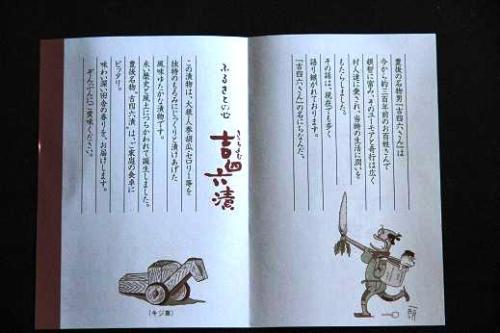 豊後の名物男『吉四六さん』は
今から約三百年前のお百姓さんで
頓智に富み、そのユーモアと奇行は広く
村人達に愛され、当時の生活に潤いを
もたらしました。
その話は、現在でも多く
語り継がれております。
『吉四六さん』の名にちなんだ、
ふるさとの心
きっちょむ
吉四六漬
この漬物は、大根人参胡瓜セロリー等を
独特のもろみにじっくりと漬けあげた
風味ゆたかな漬物です。
永い歴史と風土につちかわれて誕生しました。
豊後名物、吉四六漬は、ご家庭の食卓に
ピッタリ。
味わい深い田舎の香りを、お届けします。
ぞんぶんにご賞味ください。
(キジ車)